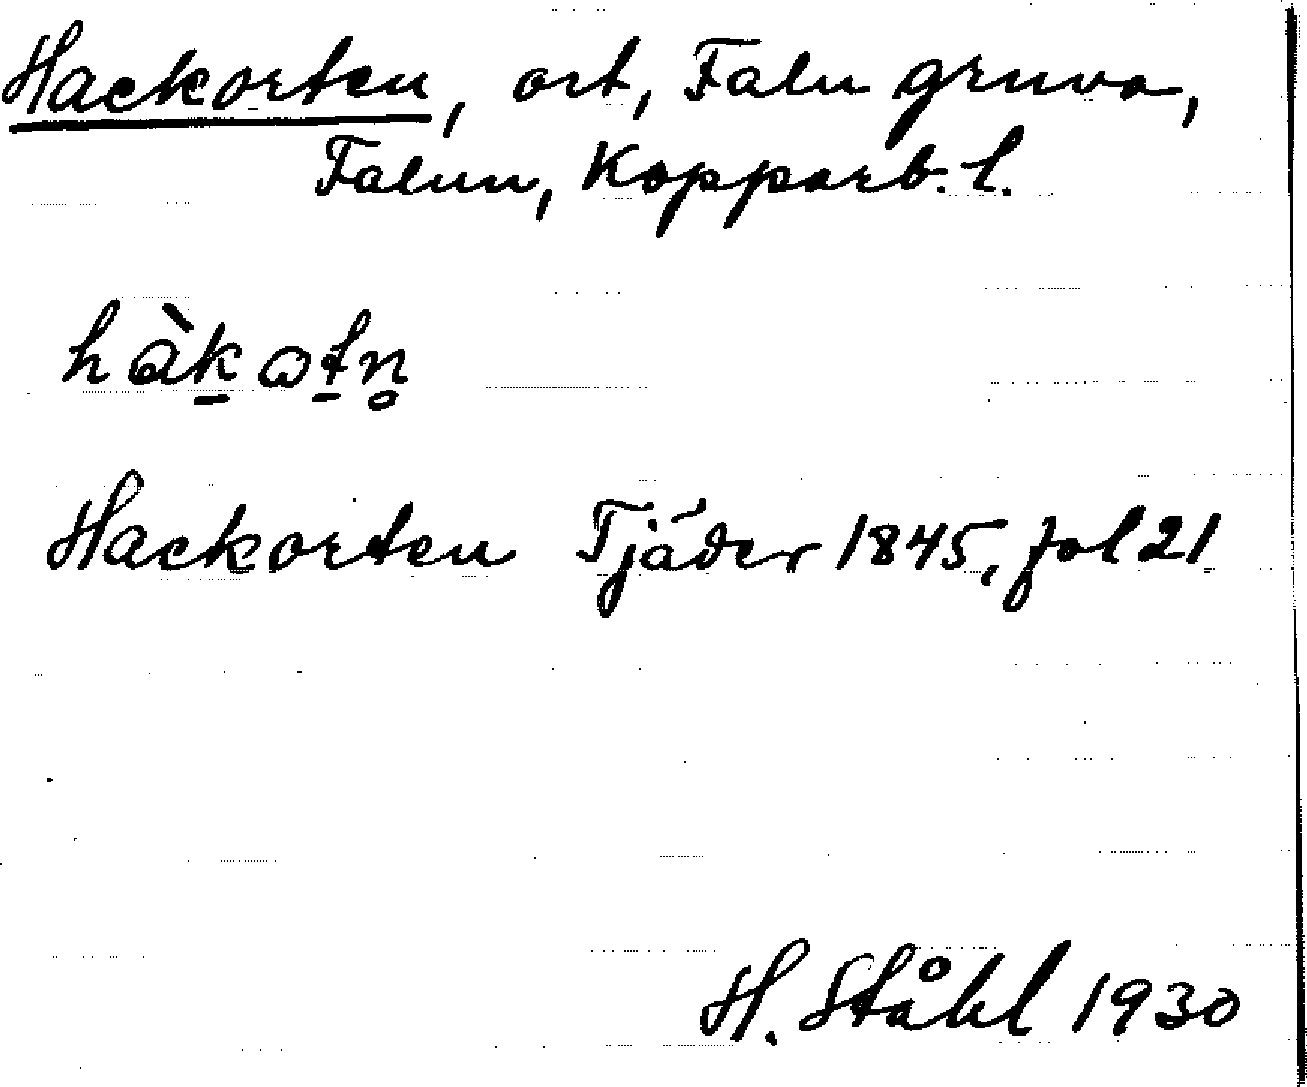 Hackorten, ort, Falu gruva,
Falun, Kopparb. l.
Hackorten Tjäder 1845, fol 21
H. Ståhl 1930